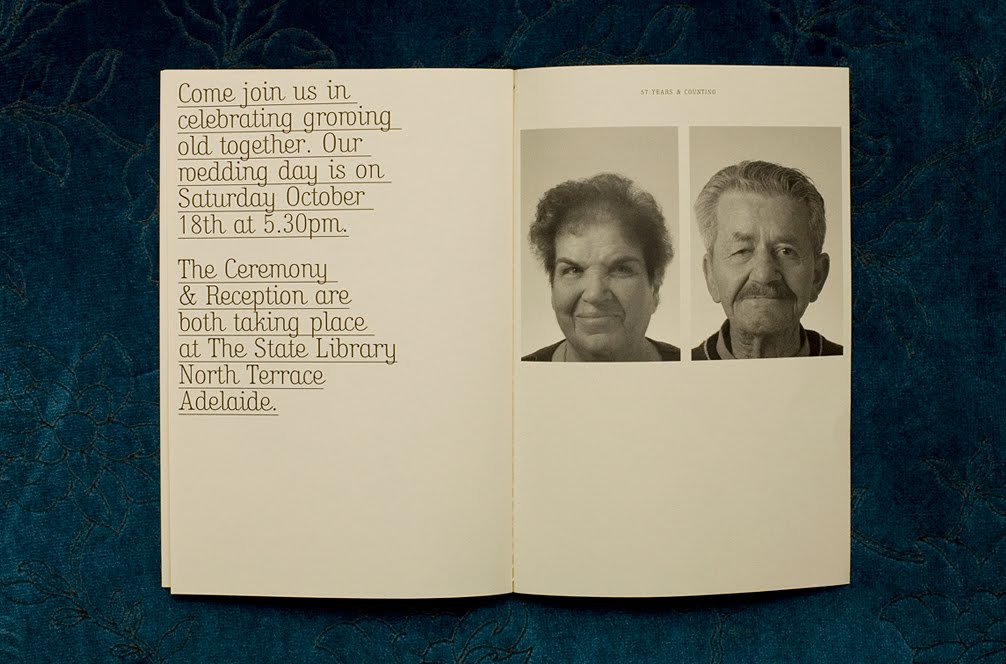 Come join us in
celebrating growing
old together. Our
wedding day is on
Saturday October
18th at 5.30pm.
The Ceremony
& Reception are
both taking place
at The State Library
North Terrace
Adelaide.
YEARS & COUNTING